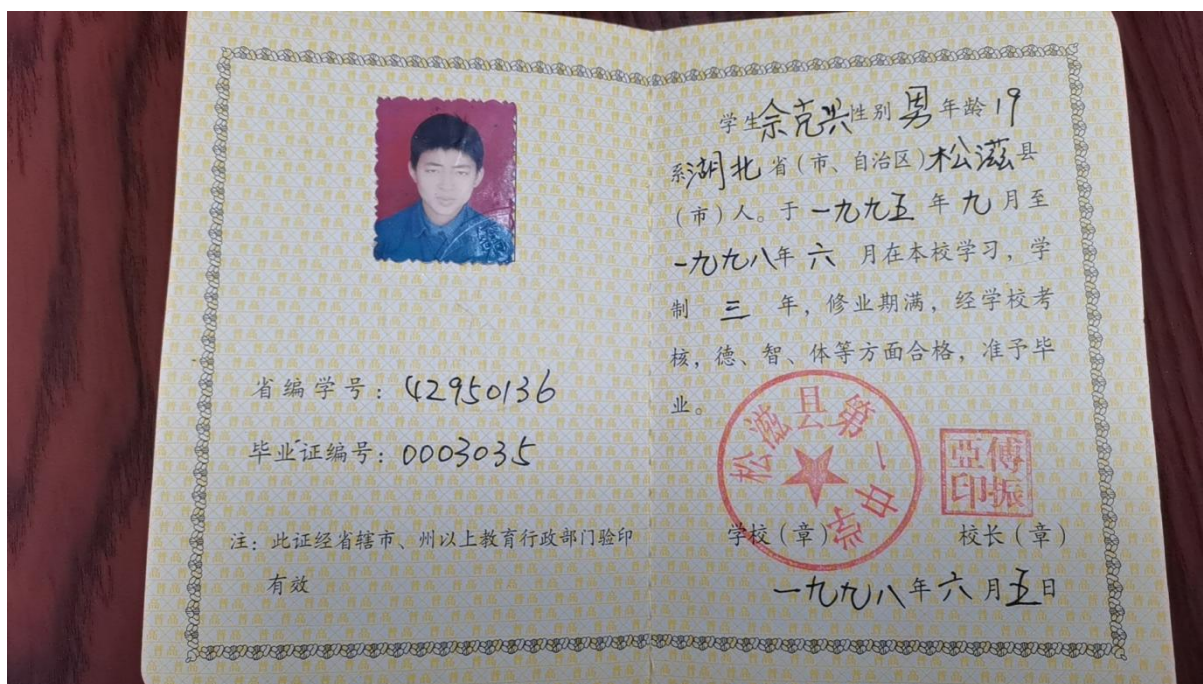 省编学号：42950136
毕业证编号：0003035
注：此证经省辖市、州以上教育行政部门验印
有效
学生余克兴性别男年龄19
系湖北省（市、自治区）松滋县
（市）人。于一九九五年九月至
一九九八年六月在本校学习，学
制三年，修业期满，经学校考
核，德、智、体等方面合格，准予毕
业。
松滋县第一中学
傅振亞印
学校（章）
校长（章）
一九九八年六月五日